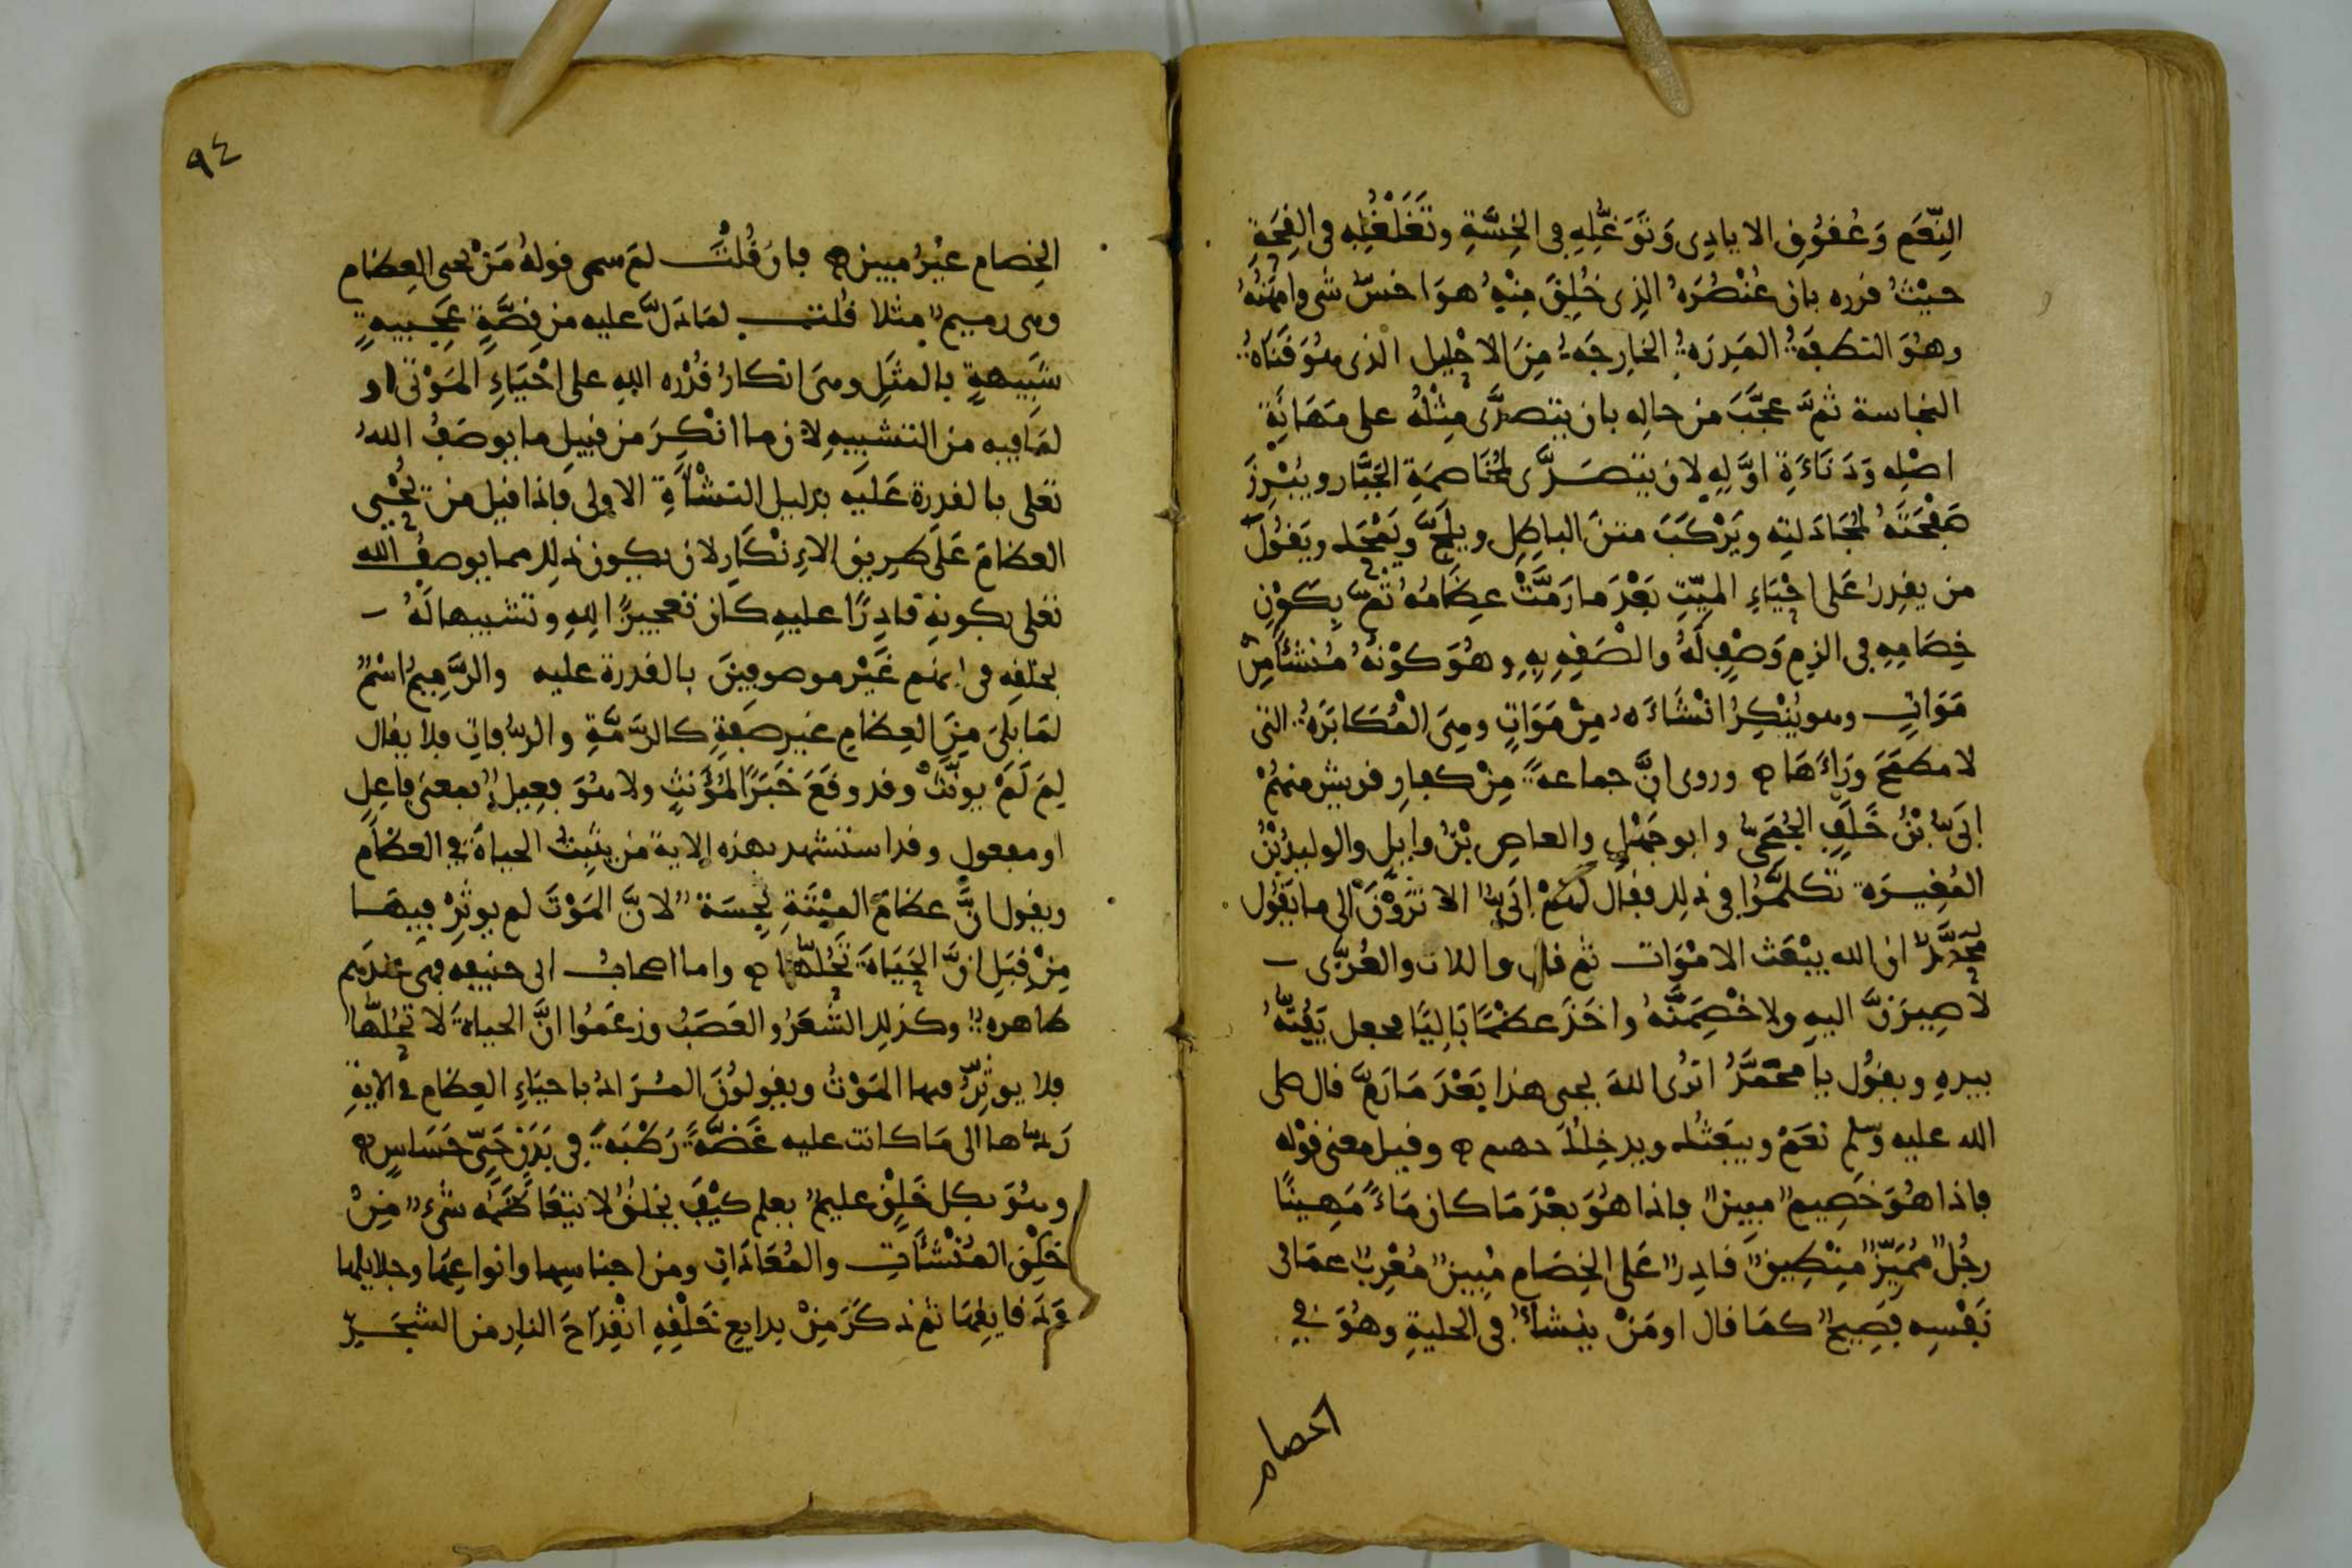 النِّعَم وَعُقوُقِ الايادِى وَتَوَغُّلِهِ فى الخِسَّةِ وتَغَلْغُلِه فى القِحَةِ
حيْثُ قرره بان عُنْصُرَهُ الذِى خُلِقَ مِنْهُ هوَ اخسّ شى وامْهَنُهُ
وهوَ النطفةُ المَذِرَةُ الخارِجَةُ مِنَ الاحْلِيل الذى هُوَ قَنَاةُ
النجاسة ثمَّ عجَّبَ من حالِه بان يتصدَّى مِثْلُهُ على مَهَانَةِ
اصْلِه وَدَنَاءَةِ اوَّلِهِ لان يتصَدَّى لِمُخَاصَمَةِ الجَبَّار ويُبْرِزَ
صَفْحَتَهُ لمُجَادَلتِه ويَرْكَبَ متنَ الباطِلِ ويلَجَّ ويَمْحَك ويَقُولَ
من يقدِرُ عَلى احْيَاءِ الميّتِ بَعْدَ ما رَمَّتْ عِظَامُهُ ثمّ يكَوْنِ
خِصَامِهِ فى الزمِ وَصْفٍ لَهُ والْصَقِهِ بِهِ وهُوَ كوْنُهُ مُنْشَأً مِنْ
مَوَاتٍ وهو يُنْكِرُ انْشَاءَهُ مِنْ مَوَاتٍ وهِىَ المُكَابَرَةُ التى
لا مطمَحَ ورَاءَهَا ه وروى انَّ جماعةً مِنْ كفارِ قريش منهُمْ
ابَىّ بْنُ خَلَفٍ الجُمَحِىّ وابو جَهْلٍ والعاصِ بْنُ وايِل والوليدُ بْنُ
المُغِيرَة تكلمُّوا فى ذلك فقال لهُمْ ابَىّ الا تَرَوْنَ الى ما يَقُول
مُحَمَّدٌ ان الله يبْعَث الامْوَات ثم قال واللات والعُزّى
لاَصِيرَنَّ اليهِ ولاخْصِمَنَّهُ واخَذَ عَظْمًا بَالِيًا فجعل يَفُتّهُ
بيدِهِ ويقُول يا محمَّدُ اترُى اللهَ يحيى هذا بَعْدَ مَا رَمَّ قال صلى
الله عليه وسلم نعَمْ ويبَعَثُك ويدخِلُكَ جهنم ه وقيل معنى قوْله
فاذا هُوَ خَصِيم مبين فاذا هوَ بعْدَ مَا كان مَاءً مَهِينًا
رجُل مُمَيّز مِنْطِيق قادِر عَلى الخِصَام مُبِين مُعْرِب عمّا فى
نَفْسِه فَصِيح كمَا قال اومَنْ يُنشَأُ فى الحليةِ وهُوَ فى
الخصام
٩٤
الخِصام غيْرُ مبين ه فان قُلْتَ لمَ سمى قولهُ مَنْ يحيى العِظام
وهى رميم مثلا قلت لمَا دَلَّ عليه من قِصَّةٍ عَجِيبةٍ
شَبِيهةٍ بالمثَلِ وهىَ انكارُ قُدْرة اللهِ على احْيَاءِ المَوْتى او
لمَا فيه من التشبِيهِ لان ما انْكِرَ من قبِيلِ ما يوصَفُ اللهُ
تعلى بالقدِرة عَليَه بدليل النشْأَةِ الاولى فاذا قيل من يُحْيى
العظامَ عَلَى طريق الاِنْكَارِ لان يكون ذلك مما يوصفُ الله
تعلى بكونِه قادِرًا عليهِ كان تعجيزًا للهِ وتشبيها لَهُ
بخلقِه فى انهم غَيْر موصوفِينَ بالقدرة عليه والرَّمِيمُ اسْمٌ
لمَا بَلَىَ مِنَ العِظامِ غير صفةٍ كالرّمَّةِ والرُّفاتِ فلا يقال
لِمَ لَمْ يونّثْ وقد وقَعَ خَبَرًا لمُؤَنثٍ ولا هُوَ فعِيلٌ بمعنى فاعِلٍ
او مفعول وقد استشهد بهذه الاية من يثْبِتُ الحياةَ فى العظام
ويقول انَّ عظامَ الميْتَةِ نَجِسَة لانَّ المَوْتَ لم يوثِرْ فيهَا
مِنْ قبَلِ انَّ الحَيَاةَ تَحُلُّهَا ه واما اصحاب ابى حنيفه فهى عندهم
طاهرة وكذلك الشَّعَرُ والعَصَبُ وزعَمُوا انَّ الحياةَ لا تحُلّها
فلا يوثِرُ فيها المَوْتُ ويقولوُنَ المُرَادُ باحيَاءِ العِظام فى الايةِ
رَدّها الى مَا كانت عليه غَضَّةً رَطْبَةً فى بَدَنٍ حَىٍّ حَسَاسٍ ه
وهُوَ بكل خَلْقٍ عليم يعلم كيْفَ يخلقُ لا يتَعَاظَمُه شىء مِنْ
خَلْقِ المُنْشَآتِ والمُعَادَاتِ ومن اجناسِها وانواعِها وجلايِلها
ودَقايقِهَا ثم ذكَرَ مِنْ بدايعِ خَلْقِهِ انْقِدَاحَ النارِ من الشجَرِ